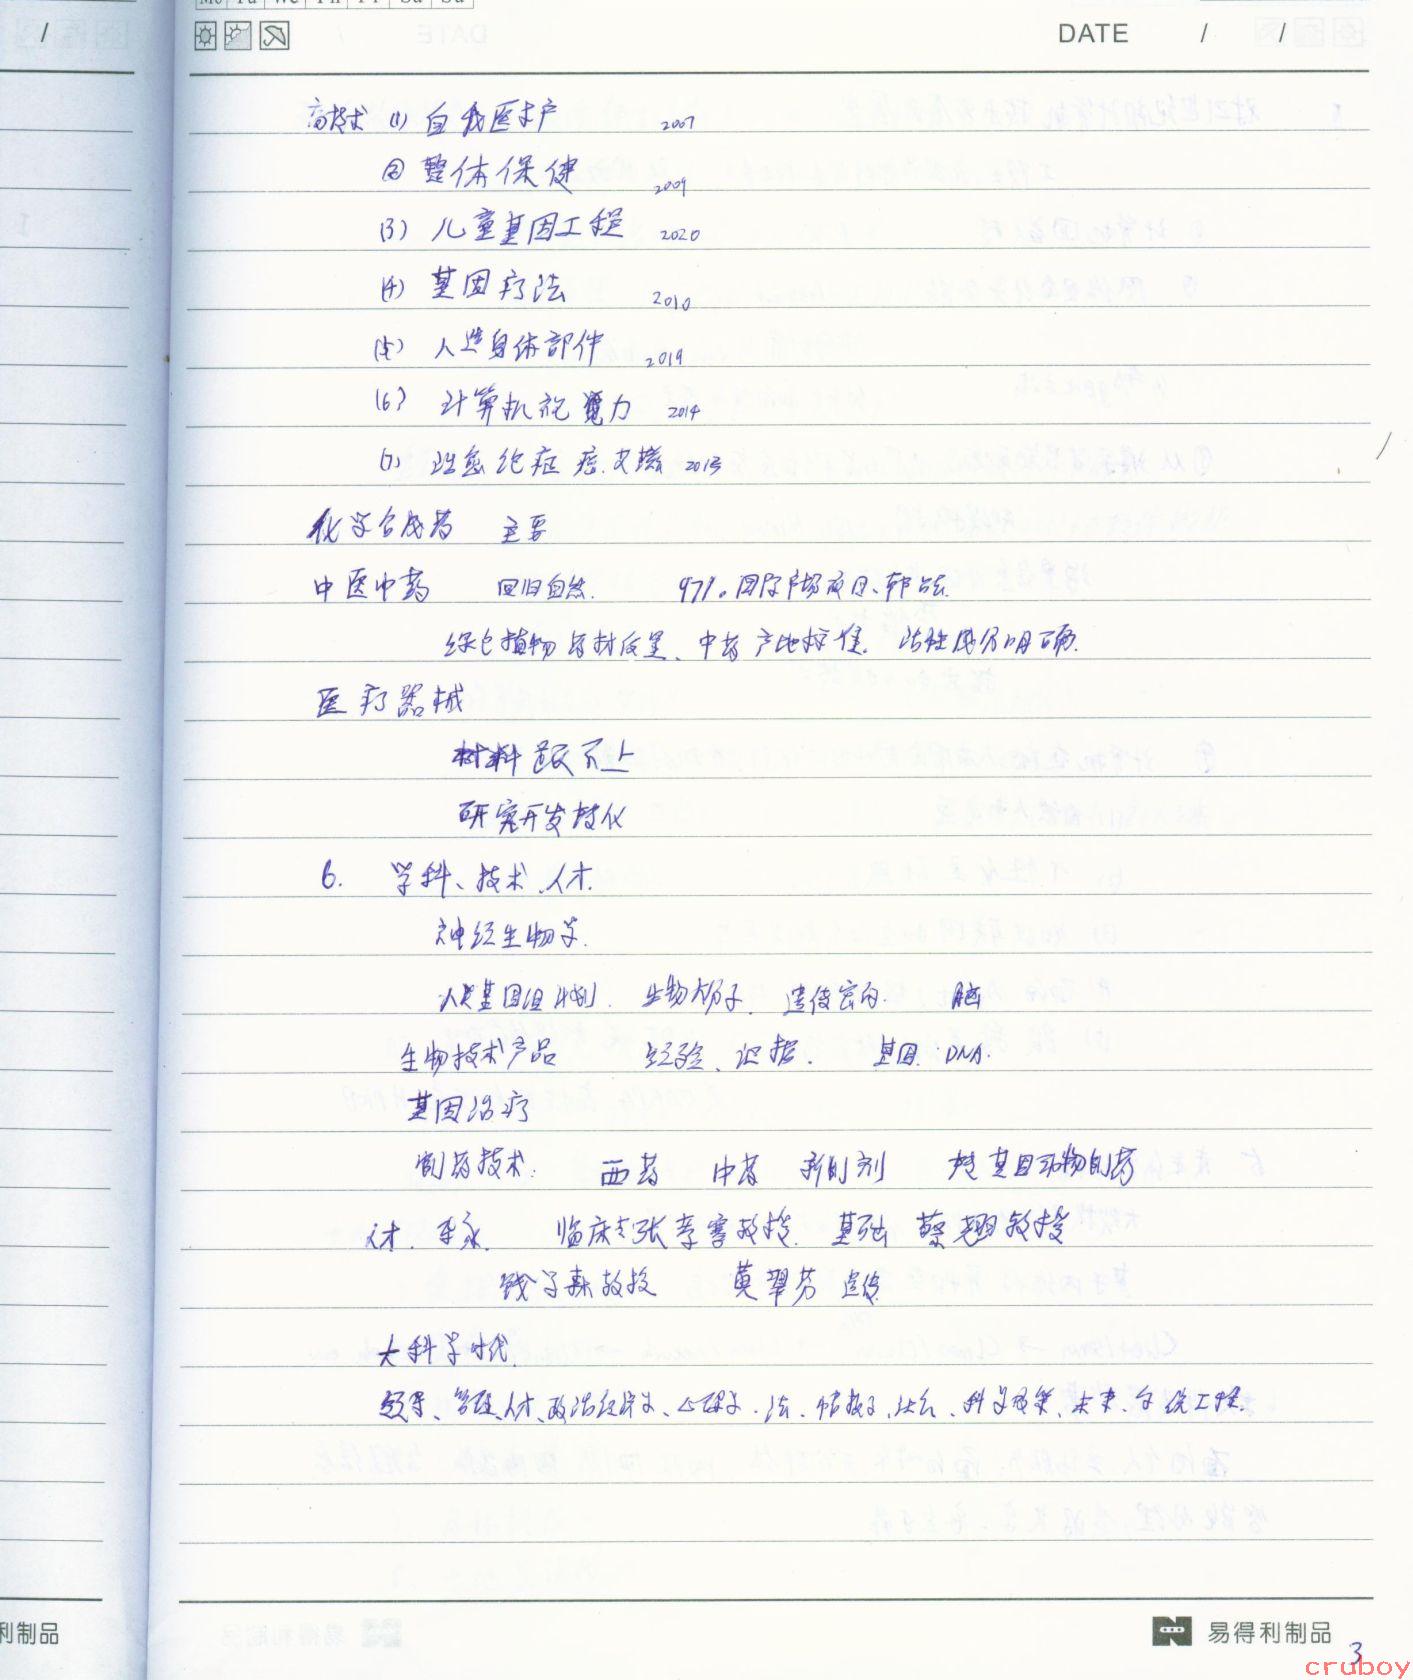 Mo Tu We Th Fr Sa Su
DATE / /
高技术 (1) 自我医术产 2007
② 整体保健 2009
(3) 儿童基因工程 2020
(4) 基因疗法 2010
(5) 人造身体部件 2019
(6) 计算机视觉力 2014
(7) 治愈绝症 癌.艾滋 2013
化学合成药 主要
中医中药 回归自然. 97%。国际市场被日、韩占.
绿色植物 药材质量、中药产地标准. 活性成分明确.
医疗器械
材料跟不上
研究开发转化
6. 学科、技术、人才.
神经生物学.
人类基因组计划. 生物分子. 遗传密码. 脑
生物技术产品 经验、证据. 基因. DNA.
基因治疗
制药技术: 西药 中药 新的剂 转基因动物制药
人才. 专家. 临床 张孝骞教授. 基础 蔡翘教授
钱学森教授 遗传
大科学时代.
领导、管理、人才、政治经济学、心理学.法、情报学、社会、科学政策、未来、系统工程.
利制品
易得利制品
3
cruboy